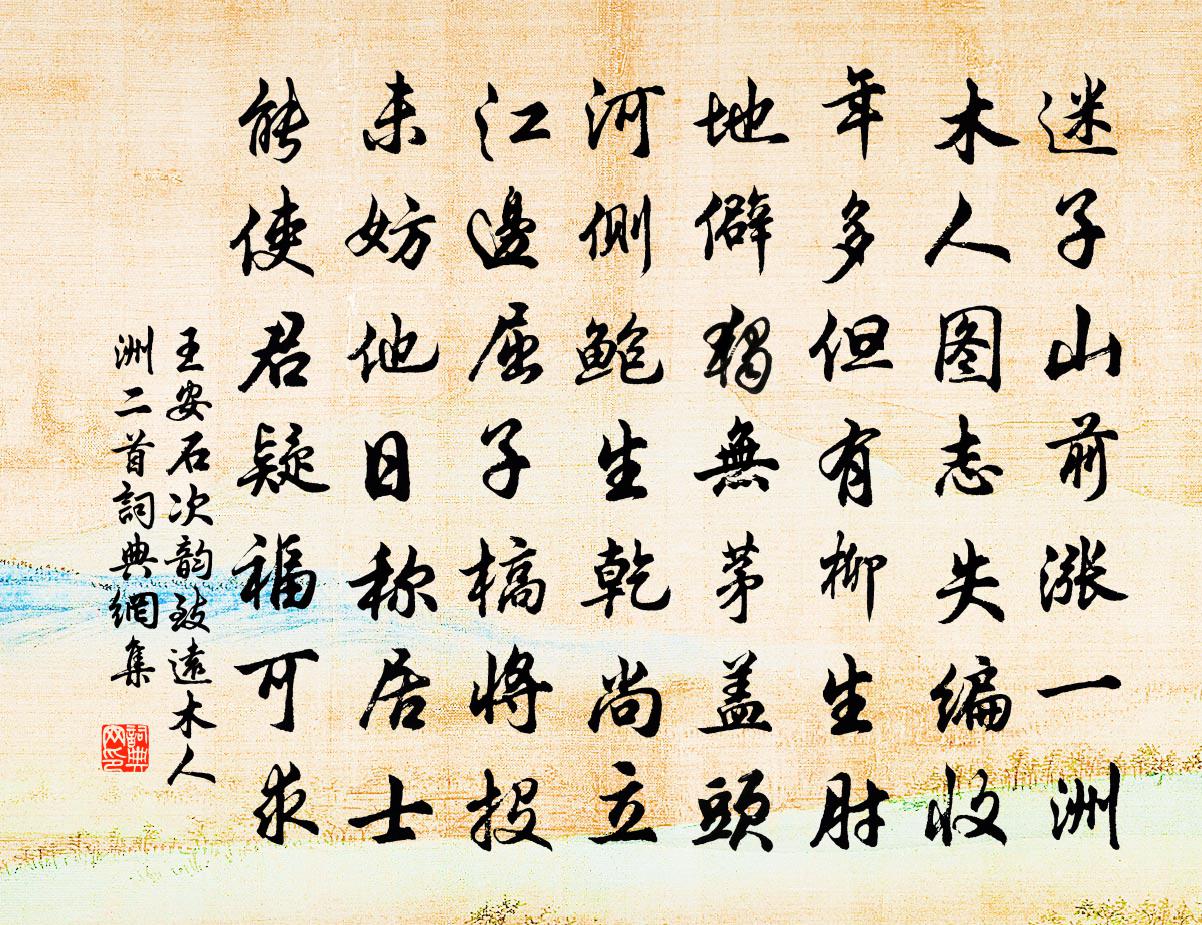 迷子山前漲一洲
木人图志失编收
年多但有柳生肘
地僻獨無茅盖頭
河側鮑生乾尚立
江邊屈子槁將投
未妨他日称居士
能使君疑福可求
王安石次韵致遠木人
洲二首詞典網集
詞典网印